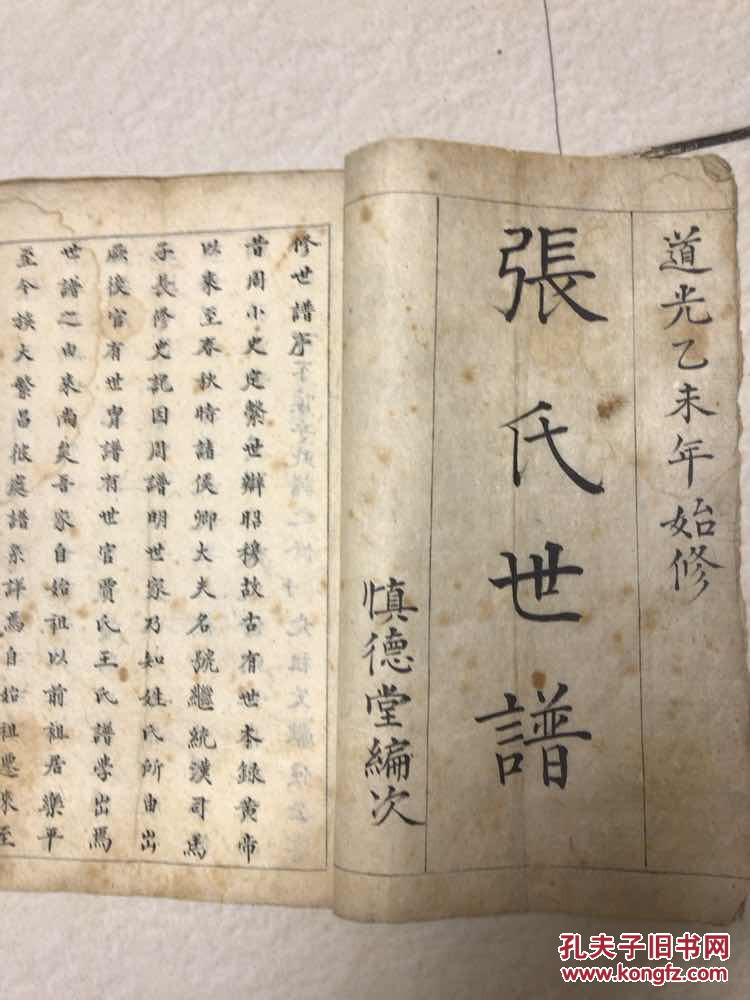 道光乙未年始修
張氏世譜
慎德堂編次
修世譜序
昔周小史定繫世辯昭穆故古有世本錄黃帝
以來至春秋時諸侯卿大夫名號繼統漢司馬
子長修史記因周譜明世家乃知姓氏所由出
厥後官有世胄譜有世官賈氏王氏譜學出焉
世譜之由來尚矣吾家自始祖以前祖居樂平
至今族大繁昌彼處譜系詳焉自始祖遷來至
孔夫子旧书网
www.kongfz.com